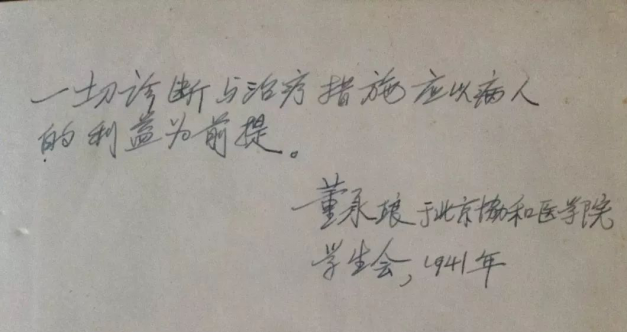 一切诊断与治疗措施应以病人
的利益为前提。
董承琅于北京协和医学院
学生会，1941年